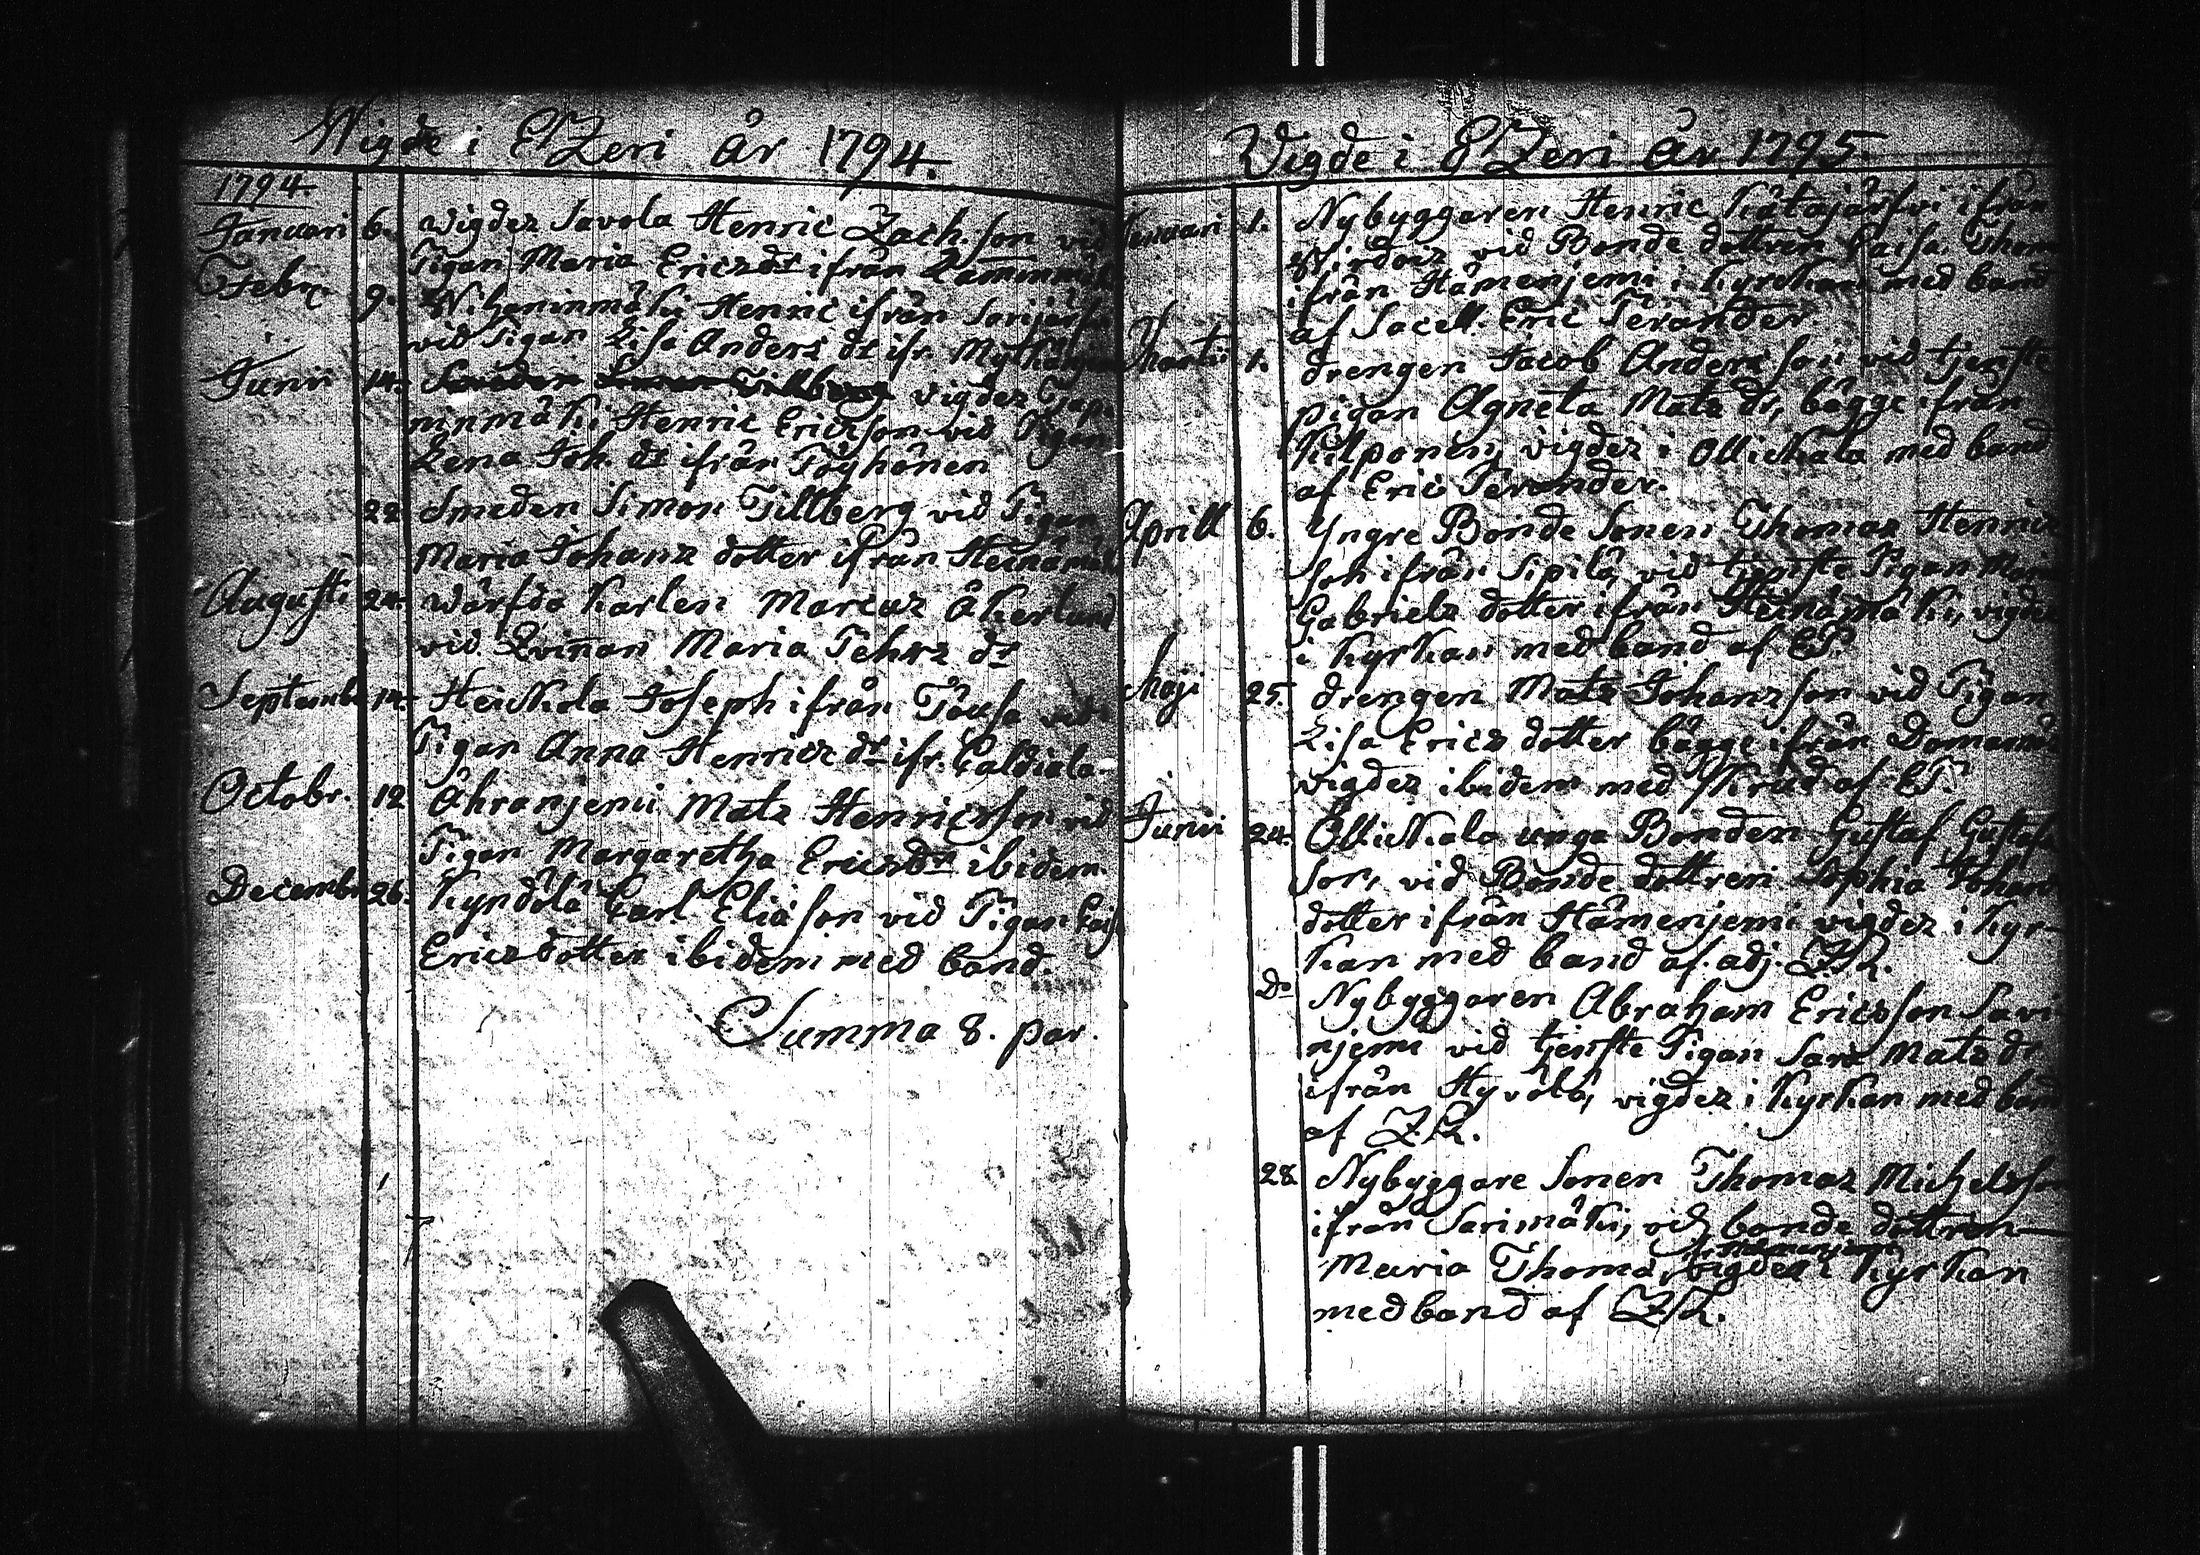 Wigde i EtZeri År 1794.
1794.
Januari 6. vigdes Savola Henric Zach. son vid
Pigan Maria Ericsdr ifrån Lamminmäki
Febr. 9. Niheninmäki Henric ifrån Sarijärfvi
vid Pigan Lisa Anders dr ifr.
Junii 14. vigdes Tapa
ninmäki Henric Ericsson vid Pigan
Lena Joh. dr ifrån Töyhönen
22 Smeden Simon Tillberg vid Pigan
Maria Johans dotter ifrån Heinämäki
Augusti 24. Wärfda Karlen Marcus Åkerlund
vid Qvinnan Maria Pehrs dr
Septembr 14. Heickola Joseph ifrån Töusa vid
Pigan Anna Henrics dr ifr. Caldiala
Octobr. 12 Ähranjemi Mats Henricsson vid
Pigan Margaretha Ericsdr ibidem.
Decembr 26. Kyndölä Carl Eliä son vid Pigan Caisa
Ericsdotter ibidem med band.
Summa 8. par.
Vigde i EtZeri År 1795.
Januari 1. Nybyggaren Henric Kätajärfvi ifrån
Wirdois vid Bonde dottren Caisa Thom
ifrån Hämenjemi i Kyrckan med band
af Sacell. Eric Terander.
Martii 1. drengen Jacob Anders son vid tjenste
pigan Agneta Mats dr, bägge ifrån
Kilponen, vigdes i Ollickala med band
af Eric Terander.
Aprill 6. Yngre Bonde Sonen Thomas Henrics
son ifrån Sipilä, vid tjenste Pigan Maria
Gabriels dotter ifrån Heinämäki, vigdes
i Kyrkan med band af ET.
Maji 25. drengen Mats Johansson vid Pigan
Lisa Erics dotter bägge ifrån
vigdes ibidem med skrud af ET.
Junii 24. Ollickala unga Bonden Gustaf Gustafs
son, vid Bonde dottren Sophia Johans
dotter ifrån Hämenjemi vigdes i Kyr-
kan med band af. adj. Z.L.
Do Nybyggaren Abraham Ericsson Savi
njemi vid tjenste Pigan Sara Mats dr
ifrån Hyvölä, vigdes i Kyrkan med band
af Z.L.
28. Nybyggare Sonen Thomas Michelsson
ifrån Sarimäki, vid bonde dottren
Maria Thomä, vigdes i Kyrkan
med band af ZL.